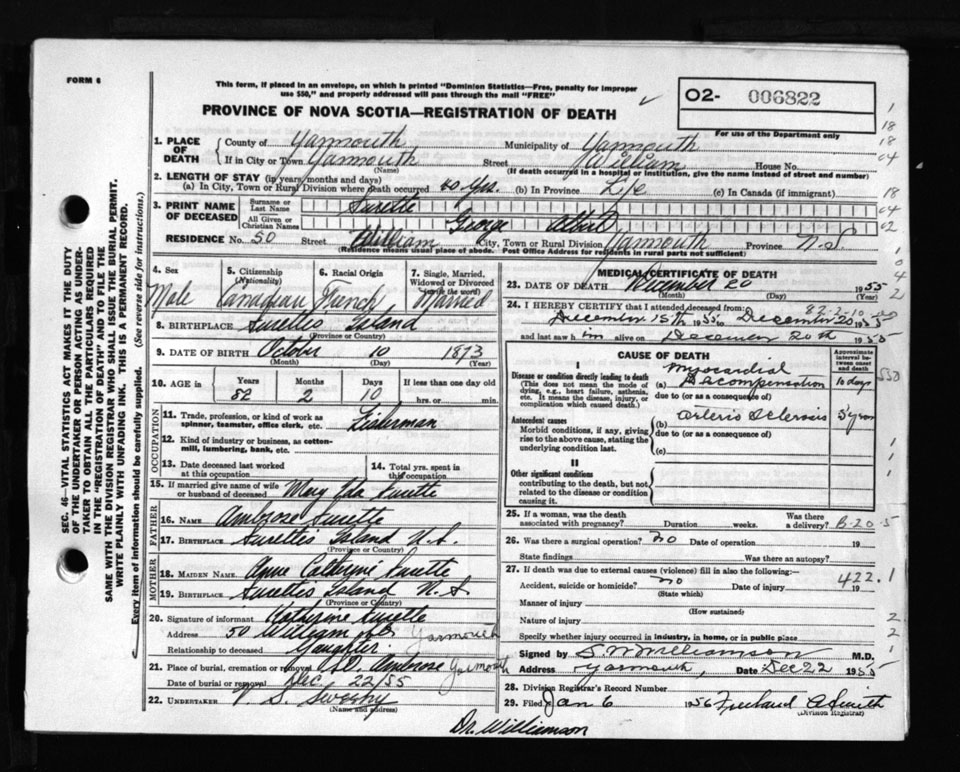 FORM 6
This form, if placed in an envelope, on which is printed "Dominion Statistics—Free, penalty for improper
use $50," and properly addressed will pass through the mail "FREE"
PROVINCE OF NOVA SCOTIA—REGISTRATION OF DEATH
02- 006822
For use of the Department only
1. PLACE OF DEATH
County of Yarmouth Municipality of Yarmouth
If in City or Town Yarmouth Street William House No.
(Name) (If death occurred in a hospital or institution, give the name instead of street and number)
2. LENGTH OF STAY (in years/months and days)
(a) In City, Town or Rural Division where death occurred 40 yrs. (b) In Province Life (c) In Canada (if immigrant)
3. PRINT NAME OF DECEASED
Surname or Last Name Surette
All Given or Christian Names George Albert
RESIDENCE No. 50 Street William City, Town or Rural Division Yarmouth Province N.S.
(Residence means usual place of abode. Post Office Address for residents in rural parts not sufficient)
4. Sex Male
5. Citizenship (Nationality) Canadian
6. Racial Origin French
7. Single, Married, Widowed or Divorced (write the word) Married
8. BIRTHPLACE Surettes Island
(Province or Country)
9. DATE OF BIRTH October 10 1873
(Month) (Day) (Year)
10. AGE in Years 82 Months 2 Days 10 If less than one day old hrs. or min.
OCCUPATION
11. Trade, profession, or kind of work as spinner, teamster, office clerk, etc. Fisherman
12. Kind of industry or business, as cotton-mill, lumbering, bank, etc.
13. Date deceased last worked at this occupation
14. Total yrs. spent in this occupation
15. If married give name of wife or husband of deceased Mary Ida Surette
FATHER
16. NAME Ambrose Surette
17. BIRTHPLACE Surettes Island N.S.
(Province or Country)
MOTHER
18. MAIDEN NAME Anne Catherine Surette
19. BIRTHPLACE Surettes Island N.S.
(Province or Country)
20. Signature of informant Katherine Surette
Address 50 William St Yarmouth
Relationship to deceased Daughter
21. Place of burial, cremation or removal St. Ambrose Yarmouth
Date of burial or removal Dec. 22/55
22. UNDERTAKER V. S. Sweeny
(Name and address)
MEDICAL CERTIFICATE OF DEATH
23. DATE OF DEATH December 20 1955
(Month) (Day) (Year)
82-2-10
24. I HEREBY CERTIFY that I attended deceased from:
December 15th 1955 to December 20 1955
and last saw him alive on December 20th 1955
CAUSE OF DEATH
Approximate interval between onset and death
I
Disease or condition directly leading to death
(This does not mean the mode of dying, e.g., heart failure, asthenia, etc. It means the disease, injury, or complication which caused death.)
(a) Myocardial Decompensation 10 days
due to (or as a consequence of)
Antecedent causes
Morbid conditions, if any, giving rise to the above cause, stating the underlying condition last.
(b) Arterio Sclerosis 5 yrs
due to (or as a consequence of)
(c)
II
Other significant conditions
contributing to the death, but not related to the disease or condition causing it.
25. If a woman, was the death associated with pregnancy? Duration weeks. Was there a delivery? B-20-5
26. Was there a surgical operation? no Date of operation 19
State findings Was there an autopsy?
27. If death was due to external causes (violence) fill in also the following:—
422.1
Accident, suicide or homicide? no Date of injury 19
(State which)
Manner of injury
(How sustained)
Nature of injury
Specify whether injury occurred in industry, in home, or in public place
Signed by S. W. Williamson M.D.
Address Yarmouth, Date Dec 22 1955
28. Division Registrar's Record Number
29. Filed Jan 6 1956 Freeland A Smith
(Division Registrar)
Dr. Williamson
SEC. 46—VITAL STATISTICS ACT MAKES IT THE DUTY
OF THE UNDERTAKER OR PERSON ACTING AS UNDER-
TAKER TO OBTAIN ALL THE PARTICULARS REQUIRED
IN THE "REGISTRATION OF DEATH" AND TO FILE THE
SAME WITH THE DIVISION REGISTRAR WHO SHALL ISSUE THE BURIAL PERMIT.
WRITE PLAINLY WITH UNFADING INK. THIS IS A PERMANENT RECORD.
Every item of information should be carefully supplied. (See reverse side for instructions.)